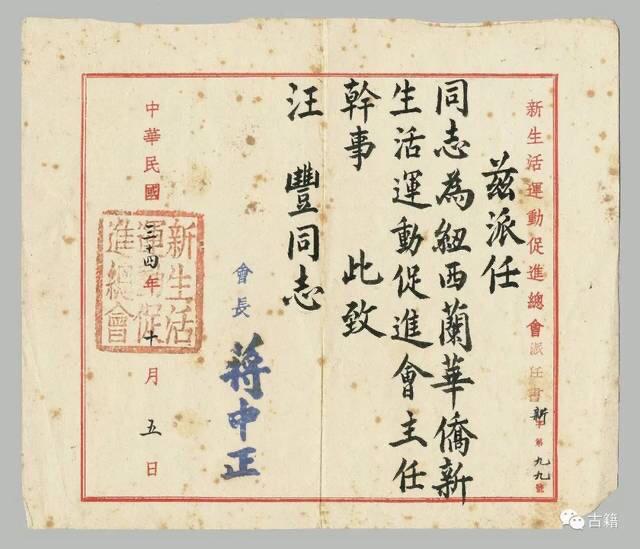 新生活運動促進總會派任書 新字第九九號
茲派任
同志為紐西蘭華僑新
生活運動促進會主任
幹事 此致
汪 豐同志
會長 蔣中正
中華民國三十四年十月五日
新生活
運動促
進總會
古籍